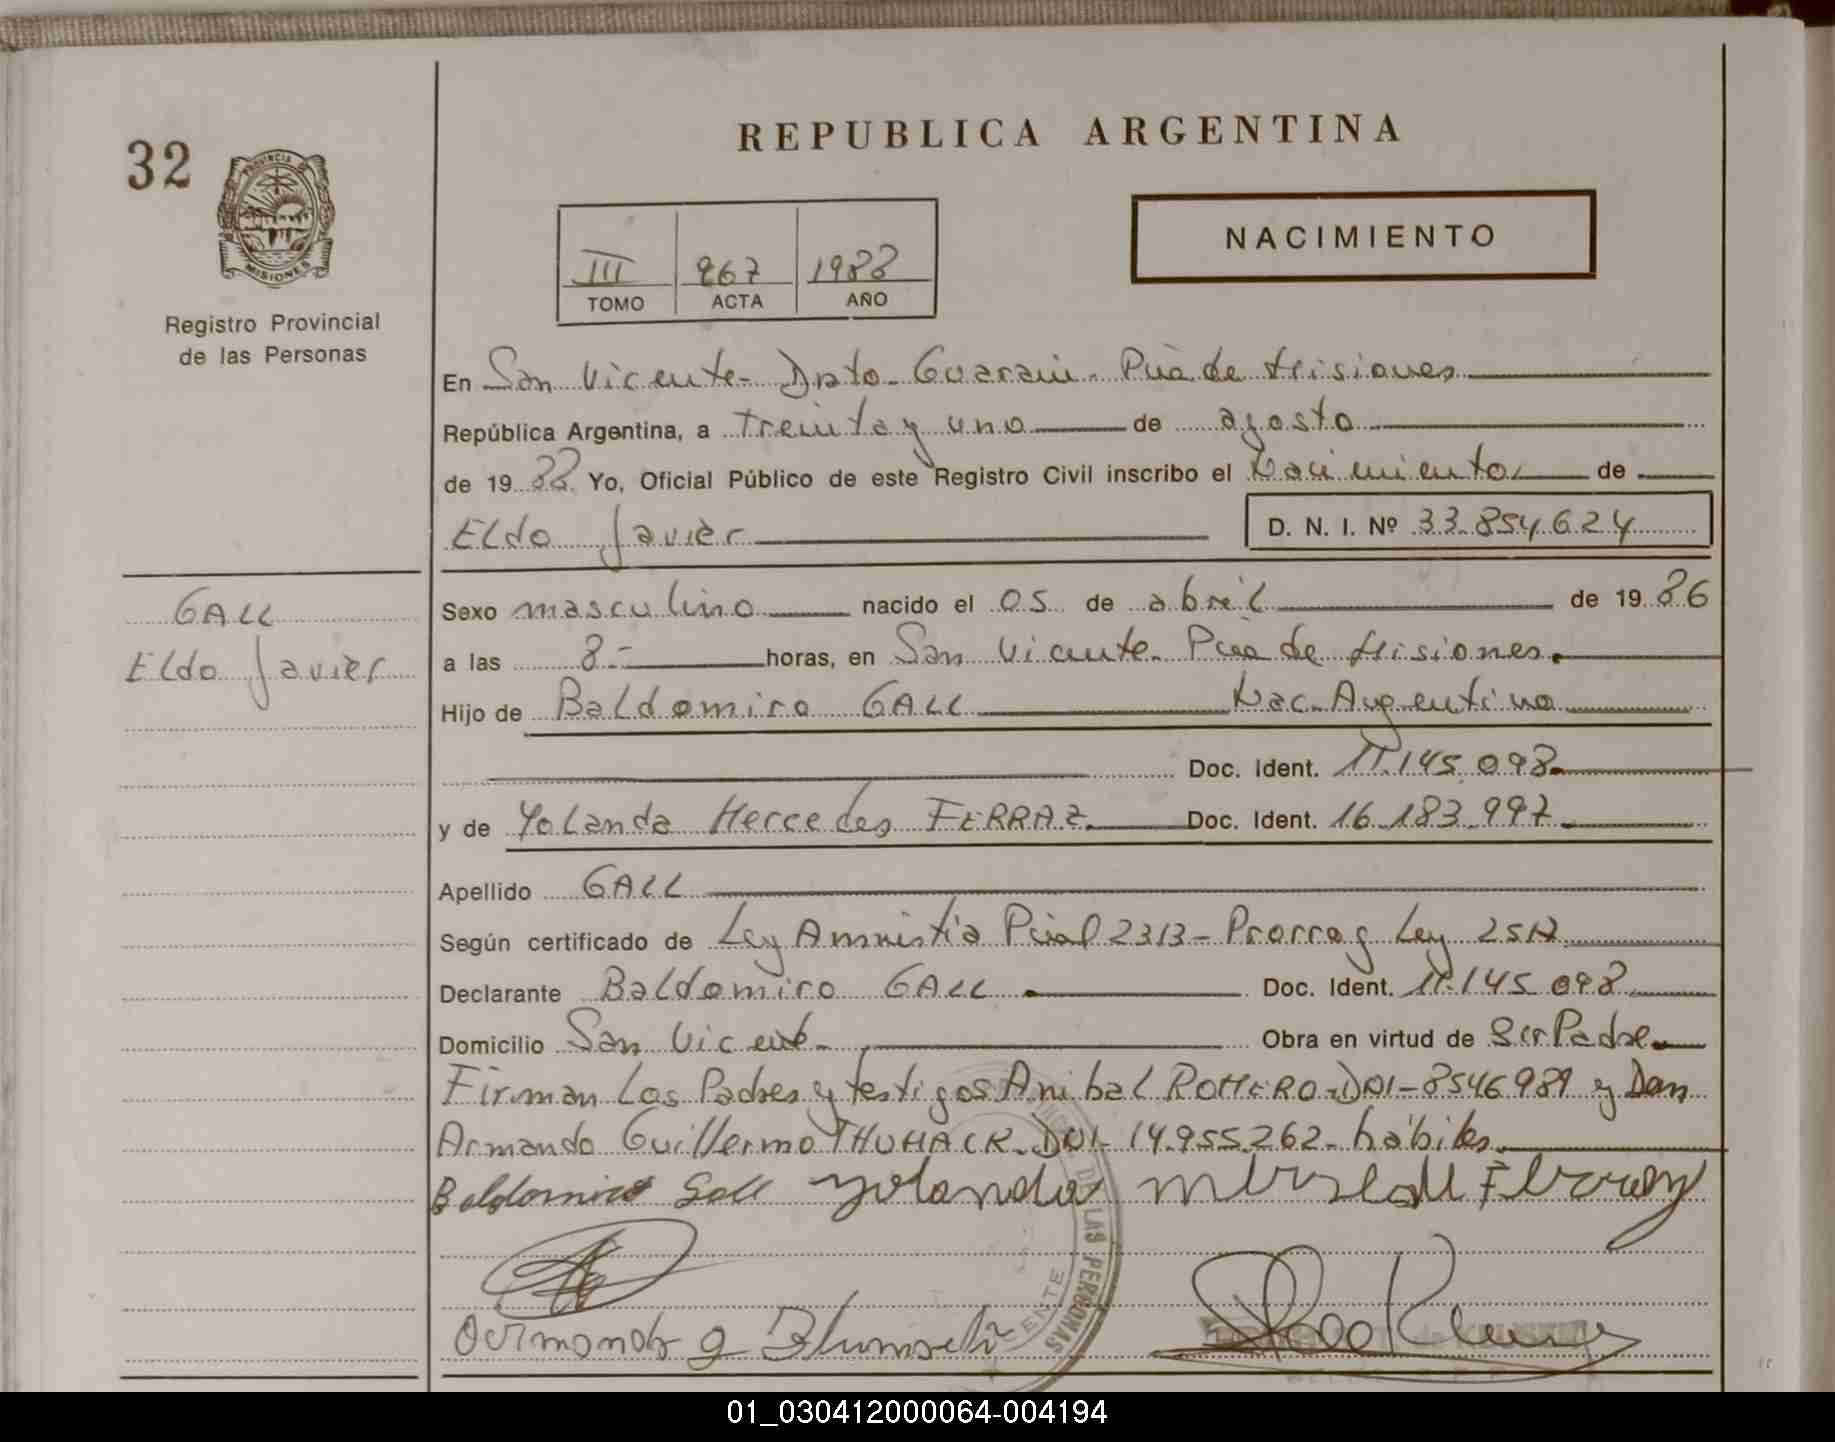 REPUBLICA ARGENTINA
32
PROVINCIA DE
MISIONES
Registro Provincial
de las Personas
NACIMIENTO
III 867 1988
TOMO ACTA AÑO
En San Vicente - Dpto - Guarani - Pcia de Misiones
República Argentina, a treinta y uno de agosto
de 19 88 Yo, Oficial Público de este Registro Civil inscribo el Nacimiento de
Eldo Javier D. N. I. Nº 33.854.624
GALL
Eldo Javier
Sexo masculino nacido el 05 de abril de 19 86
a las 8.- horas, en San Vicente - Pcia de Misiones.
Hijo de Baldomiro GALL Nac. Argentina
Doc. Ident. 11.145.098
y de Yolanda Mercedes FERRAZ Doc. Ident. 16.183.997
Apellido GALL
Según certificado de Ley Amnistia Pcial 2313 - Prorrog Ley
Declarante Baldomiro GALL Doc. Ident. 11.145.098
Domicilio San Vicente - Obra en virtud de Ser Padre
Firman Los Padres y testigos Anibal ROMERO - DNI - 8546989 y Don
Armando Guillermo THUMACK - DNI - 14.955.262 - hábiles
Baldomiro Gall Yolanda
DE LAS PERSONAS
01_030412000064-004194